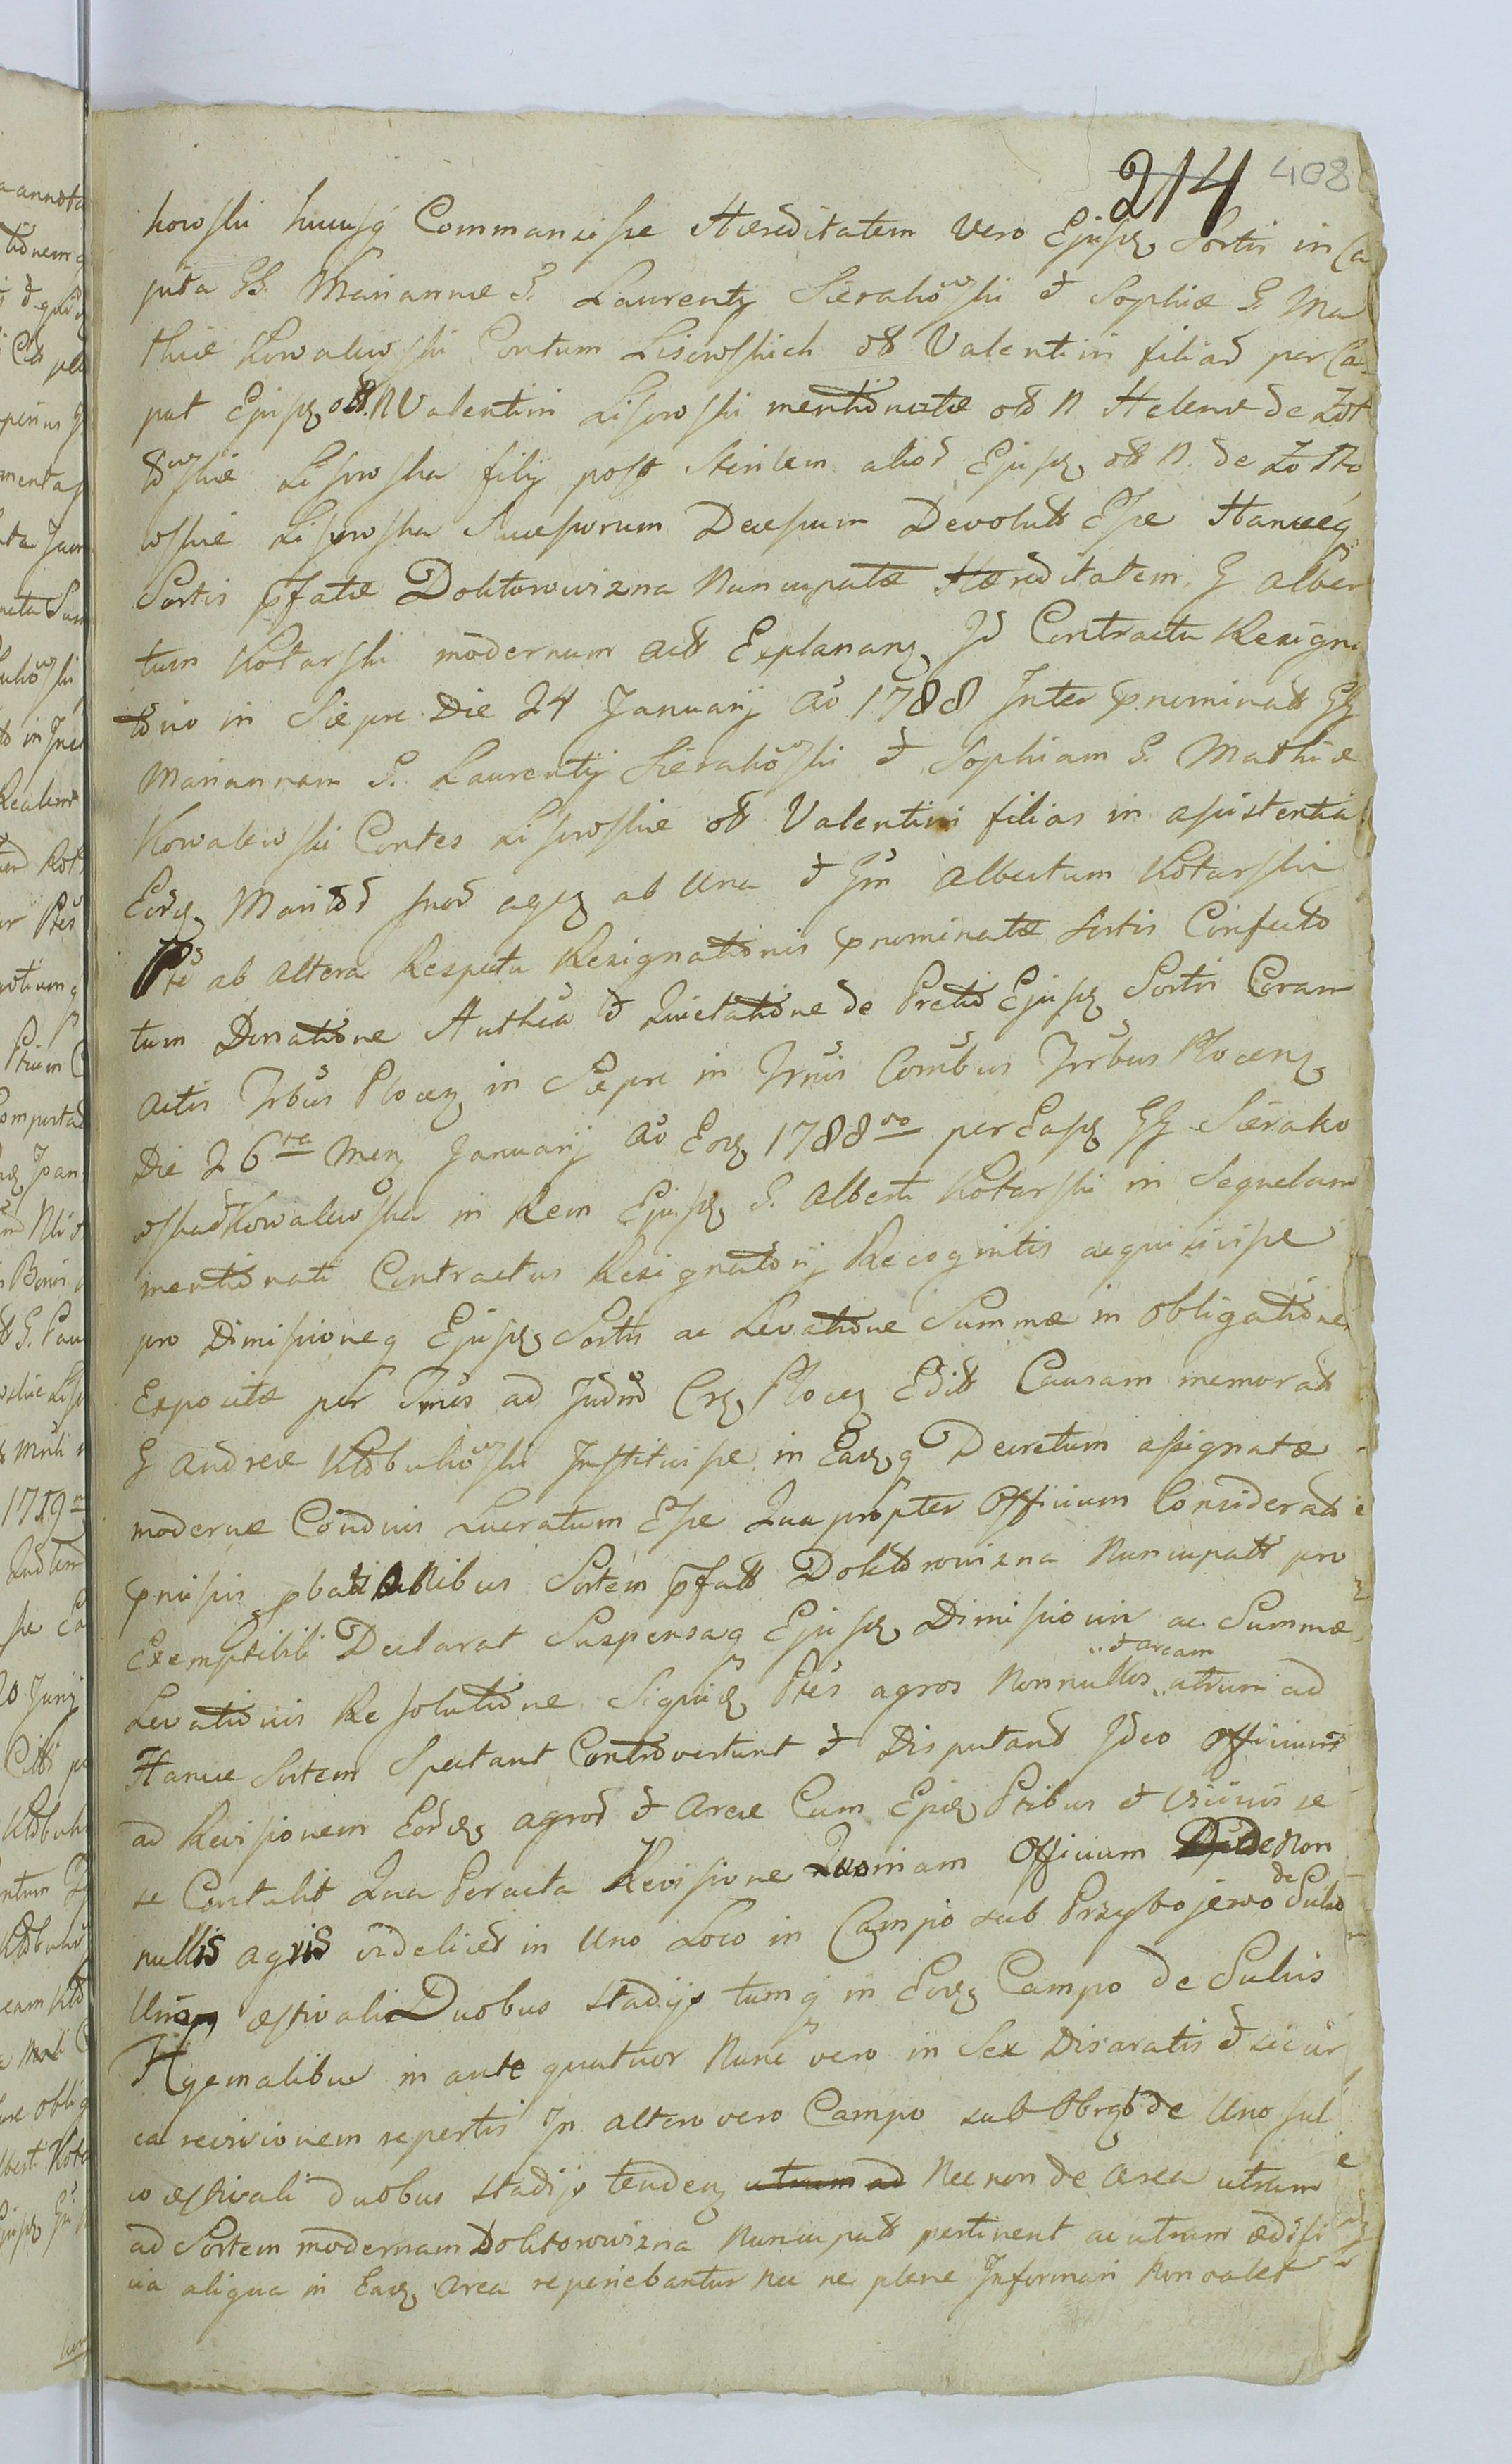 214 408
kowski hucusq Commansisse Hæreditatem vero Ejusd Sortis in Ca
pita GG. Mariannæ G. Laurentij Sierakowski et Sophiæ G. Ma
thiæ Kowalewski Contum Lisowskich olt Valentini filiar per Ca
put Ejusd olt. N Valentini Lisowski mentionatæ olt N Helenæ de Zot
towskie Lisowska filij post sterilem alior Ejusd olt N. de Zotto
wskie Lisowska Sucessorum Decessum Devolut Esse Hancceq
Sortis pfatæ Doktorowizna Nuncupatæ Hæreditatem G Alber
tum Kotarski modernum act Explananz Id Contractu Resigna
torio in Siepre Die 24 Januarij Ao 1788 Inter pnominatt GG
Mariannam G. Laurentij Sierakowski et Sophiam G. Mathiæ
Kowalewski Contes Lisowskie olt Valentini filias in assistentia
Eord Maritor suor agen ab Una et Gm Albertum Kotarski
Ptes ab Altera Respectu Resignationis pnominatæ Sortis Confecto
tum Donatione Authca et Quietatione de Pretio Ejusd Sortis Coram
Actis Trbus Plocen in Siepre in Trnis Conibus Trrbus Plocenz
Die 26ta Menz Januarij Ao Eod 1788vo per Easd GG Sierako
wska et Kowalewska in Rem Ejusd G. Alberti Kotarski in Sequelam
mentionati Contractus Resignatorij Recognitis acquisivisse
pro Dimissioneq Ejusd Sortis ac Levatione Summæ in Obligatione
Expositæ per Trnes ad Judm Crz Plocen Edit Causam memorat
G Andreæ Klobukowski Instituisse in Eadq Decretum assignatæ
modernæ Condnis Lucratum Esse Quapropter Officium Considerat
pmissis pbationibus Sortem pfatt Doktorowizna Nuncupatt pro
Exemptibili Declarat Suspensaq Ejusd Dimissionis ac Summæ
Levationis Resolutione Siquid Ptes agros Nonnullos et aream utrum ad
Hancce Sortem Spectant Controvertunt et Disputant Ideo Officium
ad Revisionem Eord agror et Areæ Cum Eisd Ptibus et vicinis se
se Contulit Qua Peracta Revisione Quoniam Officium de Non
nullis agris videlicet in Uno Loco in Campo sub Przybojewo de Sulco
Uno æstivali Duobus stadijs tumq in Eod Campo de Sulcis
Hyemalibus in ante quatuor Nunc vero in Sex Disaratis et
ea revisionem repertis In altero vero Campo sub Obręb de Uno sul
co æstivali duobus stadijs tendenz utrum ad Nec non de area utrum
ad Sortem modernam Doktorowizna Nuncupatt pertinent ac utrum ædifi
cia aliqua in Ead Area reperiebantur nec ne plene Informari Non valet